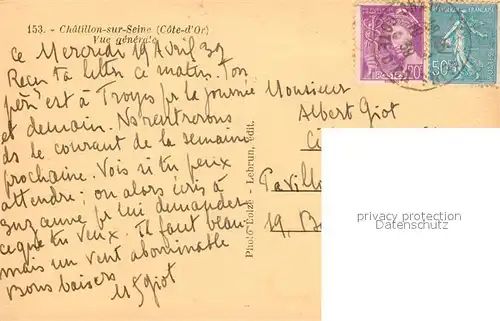 153. - Châtillon-sur-Seine (Côte-d'Or)
Vue générale
Ce Mercredi 19 Avril 39
Reçu ta lettre ce matin. Ton
père est à Troyes pr la journée
et demain. Ns rentrerons
ds le courant de la semaine
prochaine. Vois si tu peux
attendre ; ou alors écris à
pr lui demander
ce que tu veux. Il fait beau
mais un vent abominable
Bons baisers
Giot
Photo Lolzé - Lebrun, édit.
20
50
Monsieur
Albert Giot
Pavillo
19, B
privacy protection
Datenschutz